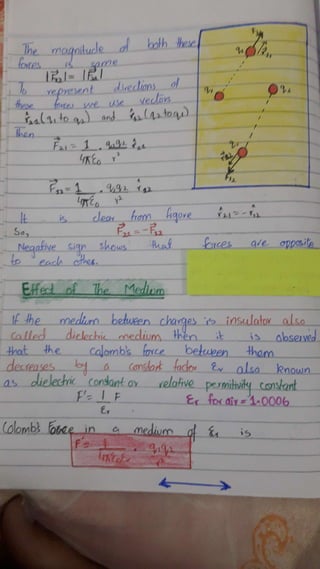 The magnitude of both these
forces is same
|F⃗₂₁| = |F⃗₁₂|
To represent directions of
these forces we use vectors
r̂₂₁ (q₁ to q₂) and r̂₁₂ (q₂ to q₁)
Then
F⃗₂₁ = 1/4πε₀ . q₁q₂/r² r̂₂₁
F⃗₁₂ = 1/4πε₀ . q₁q₂/r² r̂₁₂
It is clear from figure r̂₂₁ = -r̂₁₂
So, F⃗₂₁ = -F⃗₁₂
Negative sign shows that forces are opposite
to each other.
q₂
r̂₂₁
F₂₁
q₁
q₂
q₁
r̂₁₂
F₁₂
Effect of The Medium
If the medium between charges is insulator also
called dielectric medium then it is observed
that the colomb's force between them
decreases by a constant factor εr also known
as dielectric constant or relative permitivity constant
F' = 1/εr F
εr for air = 1.0006
Colomb's Force in a medium of εr is
F' = 1/4πε₀εr . q₁q₂/r²